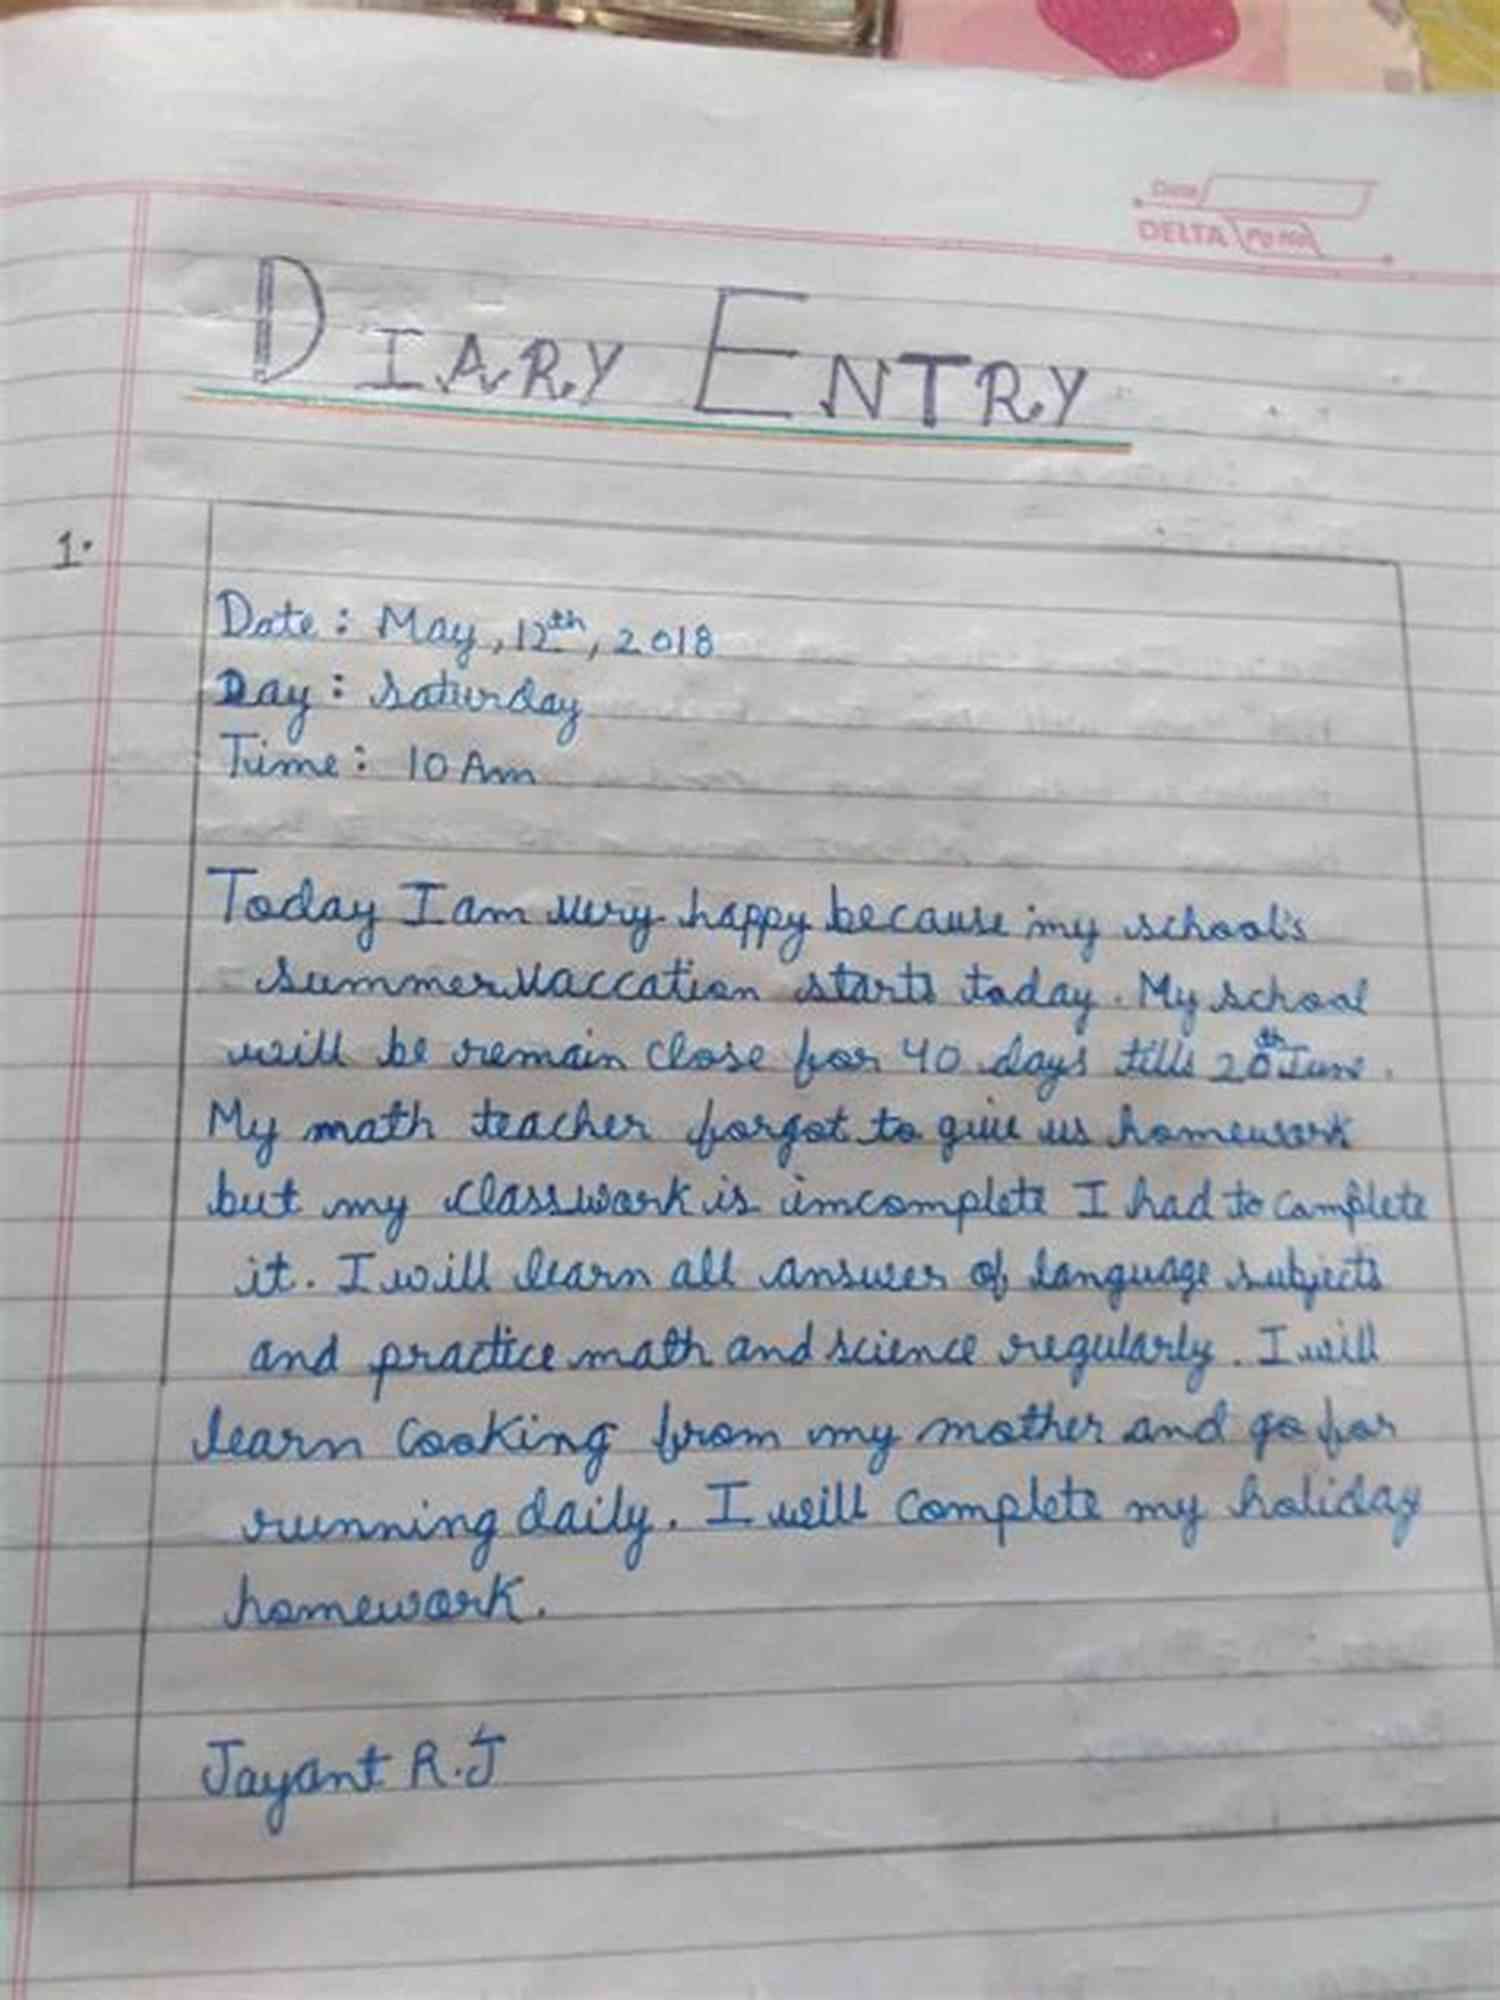 Date
DELTA
DIARY ENTRY
1.
Date : May, 12th, 2018
Day : Saturday
Time : 10 Am
Today I am very happy because my school's
summer vaccation starts today. My school
will be remain close for 40 days tills 20th June.
My math teacher forgot to give us homework
but my classwork is imcomplete I had to complete
it. I will learn all answer of language subjects
and practice math and science regularly. I will
learn cooking from my mother and go for
running daily. I will complete my holiday
homework.
Jayant R.J